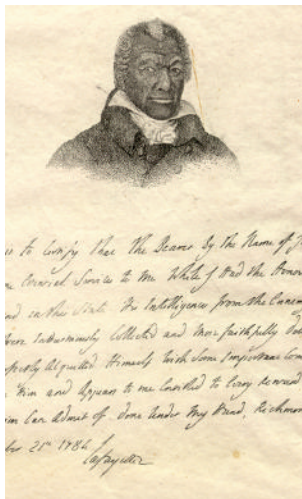 is to Certify that the Bearer By the Name of J
ne Essential Services to Me While I Had the Honour
nd in this State. His Intelligences from the Enemy's
were Industriously Collected and More faithfully
perfectly Acquitted Himself with Some Important Com
Him and Appears to me Entitled to Every Reward
him Can Admit of. Done Under My Hand, Richmon
ber 21st 1784
Lafayette